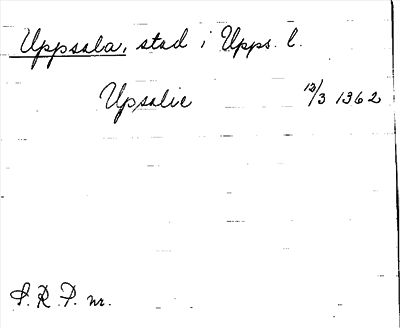 Uppsala, stad i Upps. l.
Upsalie 13/3 1362
S. R. P. nr.